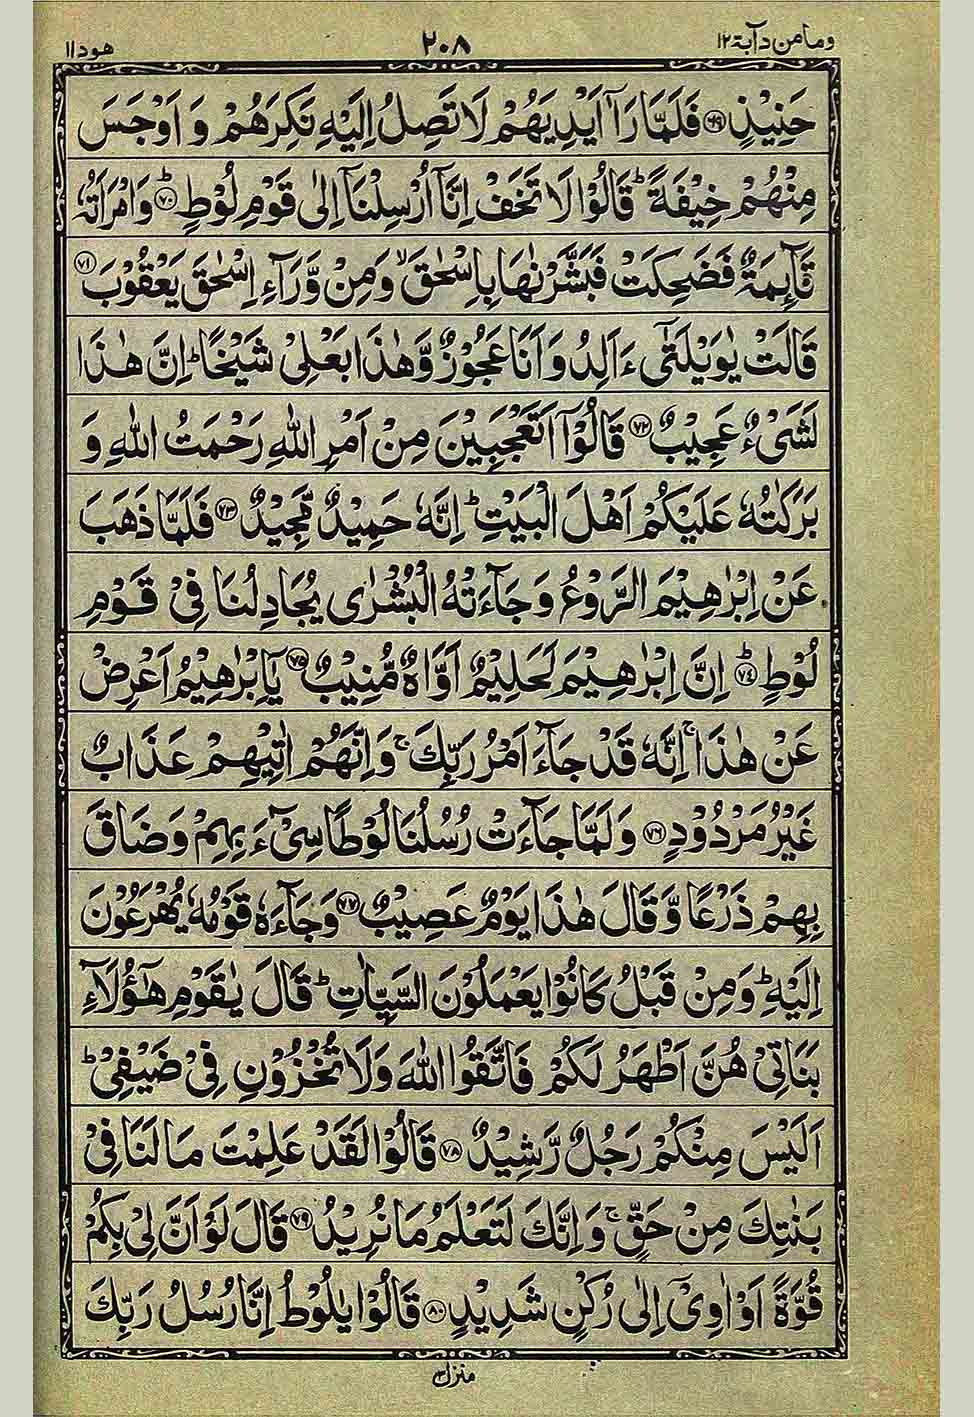 وما من دآبة ١٢
٢٠٨
هود ١١
حَنِيْذٍ ﴿٦٩﴾ فَلَمَّا رَاٰۤ اَيْدِيَهُمْ لَا تَصِلُ اِلَيْهِ نَكِرَهُمْ وَ اَوْجَسَ
مِنْهُمْ خِيْفَةً ؕ قَالُوْا لَا تَخَفْ اِنَّاۤ اُرْسِلْنَاۤ اِلٰى قَوْمِ لُوْطٍ ﴿٧٠﴾ؕ وَ امْرَاَتُهٗ
قَآىِٕمَةٌ فَضَحِكَتْ فَبَشَّرْنٰهَا بِاِسْحٰقَ ۙ وَ مِنْ وَّرَآءِ اِسْحٰقَ يَعْقُوْبَ ﴿٧١﴾
قَالَتْ يٰوَيْلَتٰۤى ءَاَلِدُ وَ اَنَا عَجُوْزٌ وَّ هٰذَا بَعْلِیْ شَيْخًا ؕ اِنَّ هٰذَا
لَشَیْءٌ عَجِيْبٌ ﴿٧٢﴾ قَالُوْۤا اَتَعْجَبِيْنَ مِنْ اَمْرِ اللّٰهِ رَحْمَتُ اللّٰهِ وَ
بَرَكٰتُهٗ عَلَيْكُمْ اَهْلَ الْبَيْتِ ؕ اِنَّهٗ حَمِيْدٌ مَّجِيْدٌ ﴿٧٣﴾ فَلَمَّا ذَهَبَ
عَنْ اِبْرٰهِيْمَ الرَّوْعُ وَ جَآءَتْهُ الْبُشْرٰى يُجَادِلُنَا فِیْ قَوْمِ
لُوْطٍ ﴿٧٤﴾ؕ اِنَّ اِبْرٰهِيْمَ لَحَلِيْمٌ اَوَّاهٌ مُّنِيْبٌ ﴿٧٥﴾ يٰۤاِبْرٰهِيْمُ اَعْرِضْ
عَنْ هٰذَا ۚ اِنَّهٗ قَدْ جَآءَ اَمْرُ رَبِّكَ ۚ وَ اِنَّهُمْ اٰتِيْهِمْ عَذَابٌ
غَيْرُ مَرْدُوْدٍ ﴿٧٦﴾ وَ لَمَّا جَآءَتْ رُسُلُنَا لُوْطًا سِیْٓءَ بِهِمْ وَ ضَاقَ
بِهِمْ ذَرْعًا وَّ قَالَ هٰذَا يَوْمٌ عَصِيْبٌ ﴿٧٧﴾ وَ جَآءَهٗ قَوْمُهٗ يُهْرَعُوْنَ
اِلَيْهِ ؕ وَ مِنْ قَبْلُ كَانُوْا يَعْمَلُوْنَ السَّيِّاٰتِ ؕ قَالَ يٰقَوْمِ هٰۤؤُلَآءِ
بَنَاتِیْ هُنَّ اَطْهَرُ لَكُمْ فَاتَّقُوا اللّٰهَ وَ لَا تُخْزُوْنِ فِیْ ضَيْفِیْ ؕ
اَلَيْسَ مِنْكُمْ رَجُلٌ رَّشِيْدٌ ﴿٧٨﴾ قَالُوْا لَقَدْ عَلِمْتَ مَا لَنَا فِیْ
بَنٰتِكَ مِنْ حَقٍّ ۚ وَ اِنَّكَ لَتَعْلَمُ مَا نُرِيْدُ ﴿٧٩﴾ قَالَ لَوْ اَنَّ لِیْ بِكُمْ
قُوَّةً اَوْ اٰوِیْۤ اِلٰى رُكْنٍ شَدِيْدٍ ﴿٨٠﴾ قَالُوْا يٰلُوْطُ اِنَّا رُسُلُ رَبِّكَ
منزل ٣